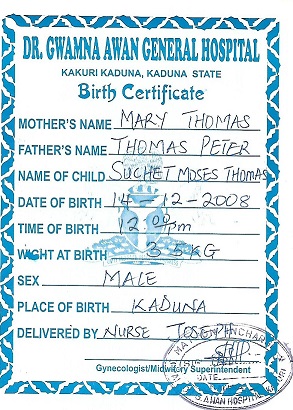 DR. GWAMNA AWAN GENERAL HOSPITAL
KAKURI KADUNA, KADUNA STATE
Birth Certificate
MOTHER'S NAME MARY THOMAS
FATHER'S NAME THOMAS PETER
NAME OF CHILD SUCHET MOSES THOMAS
DATE OF BIRTH 14-12-2008
TIME OF BIRTH 12 00 pm
WIGHT AT BIRTH 3.5KG
SEX MALE
PLACE OF BIRTH KADUNA
DELIVERED BY NURSE JOSEPH
Gynecologist/Midwitory Superintendent
DATE
AWAN HOSPITAL